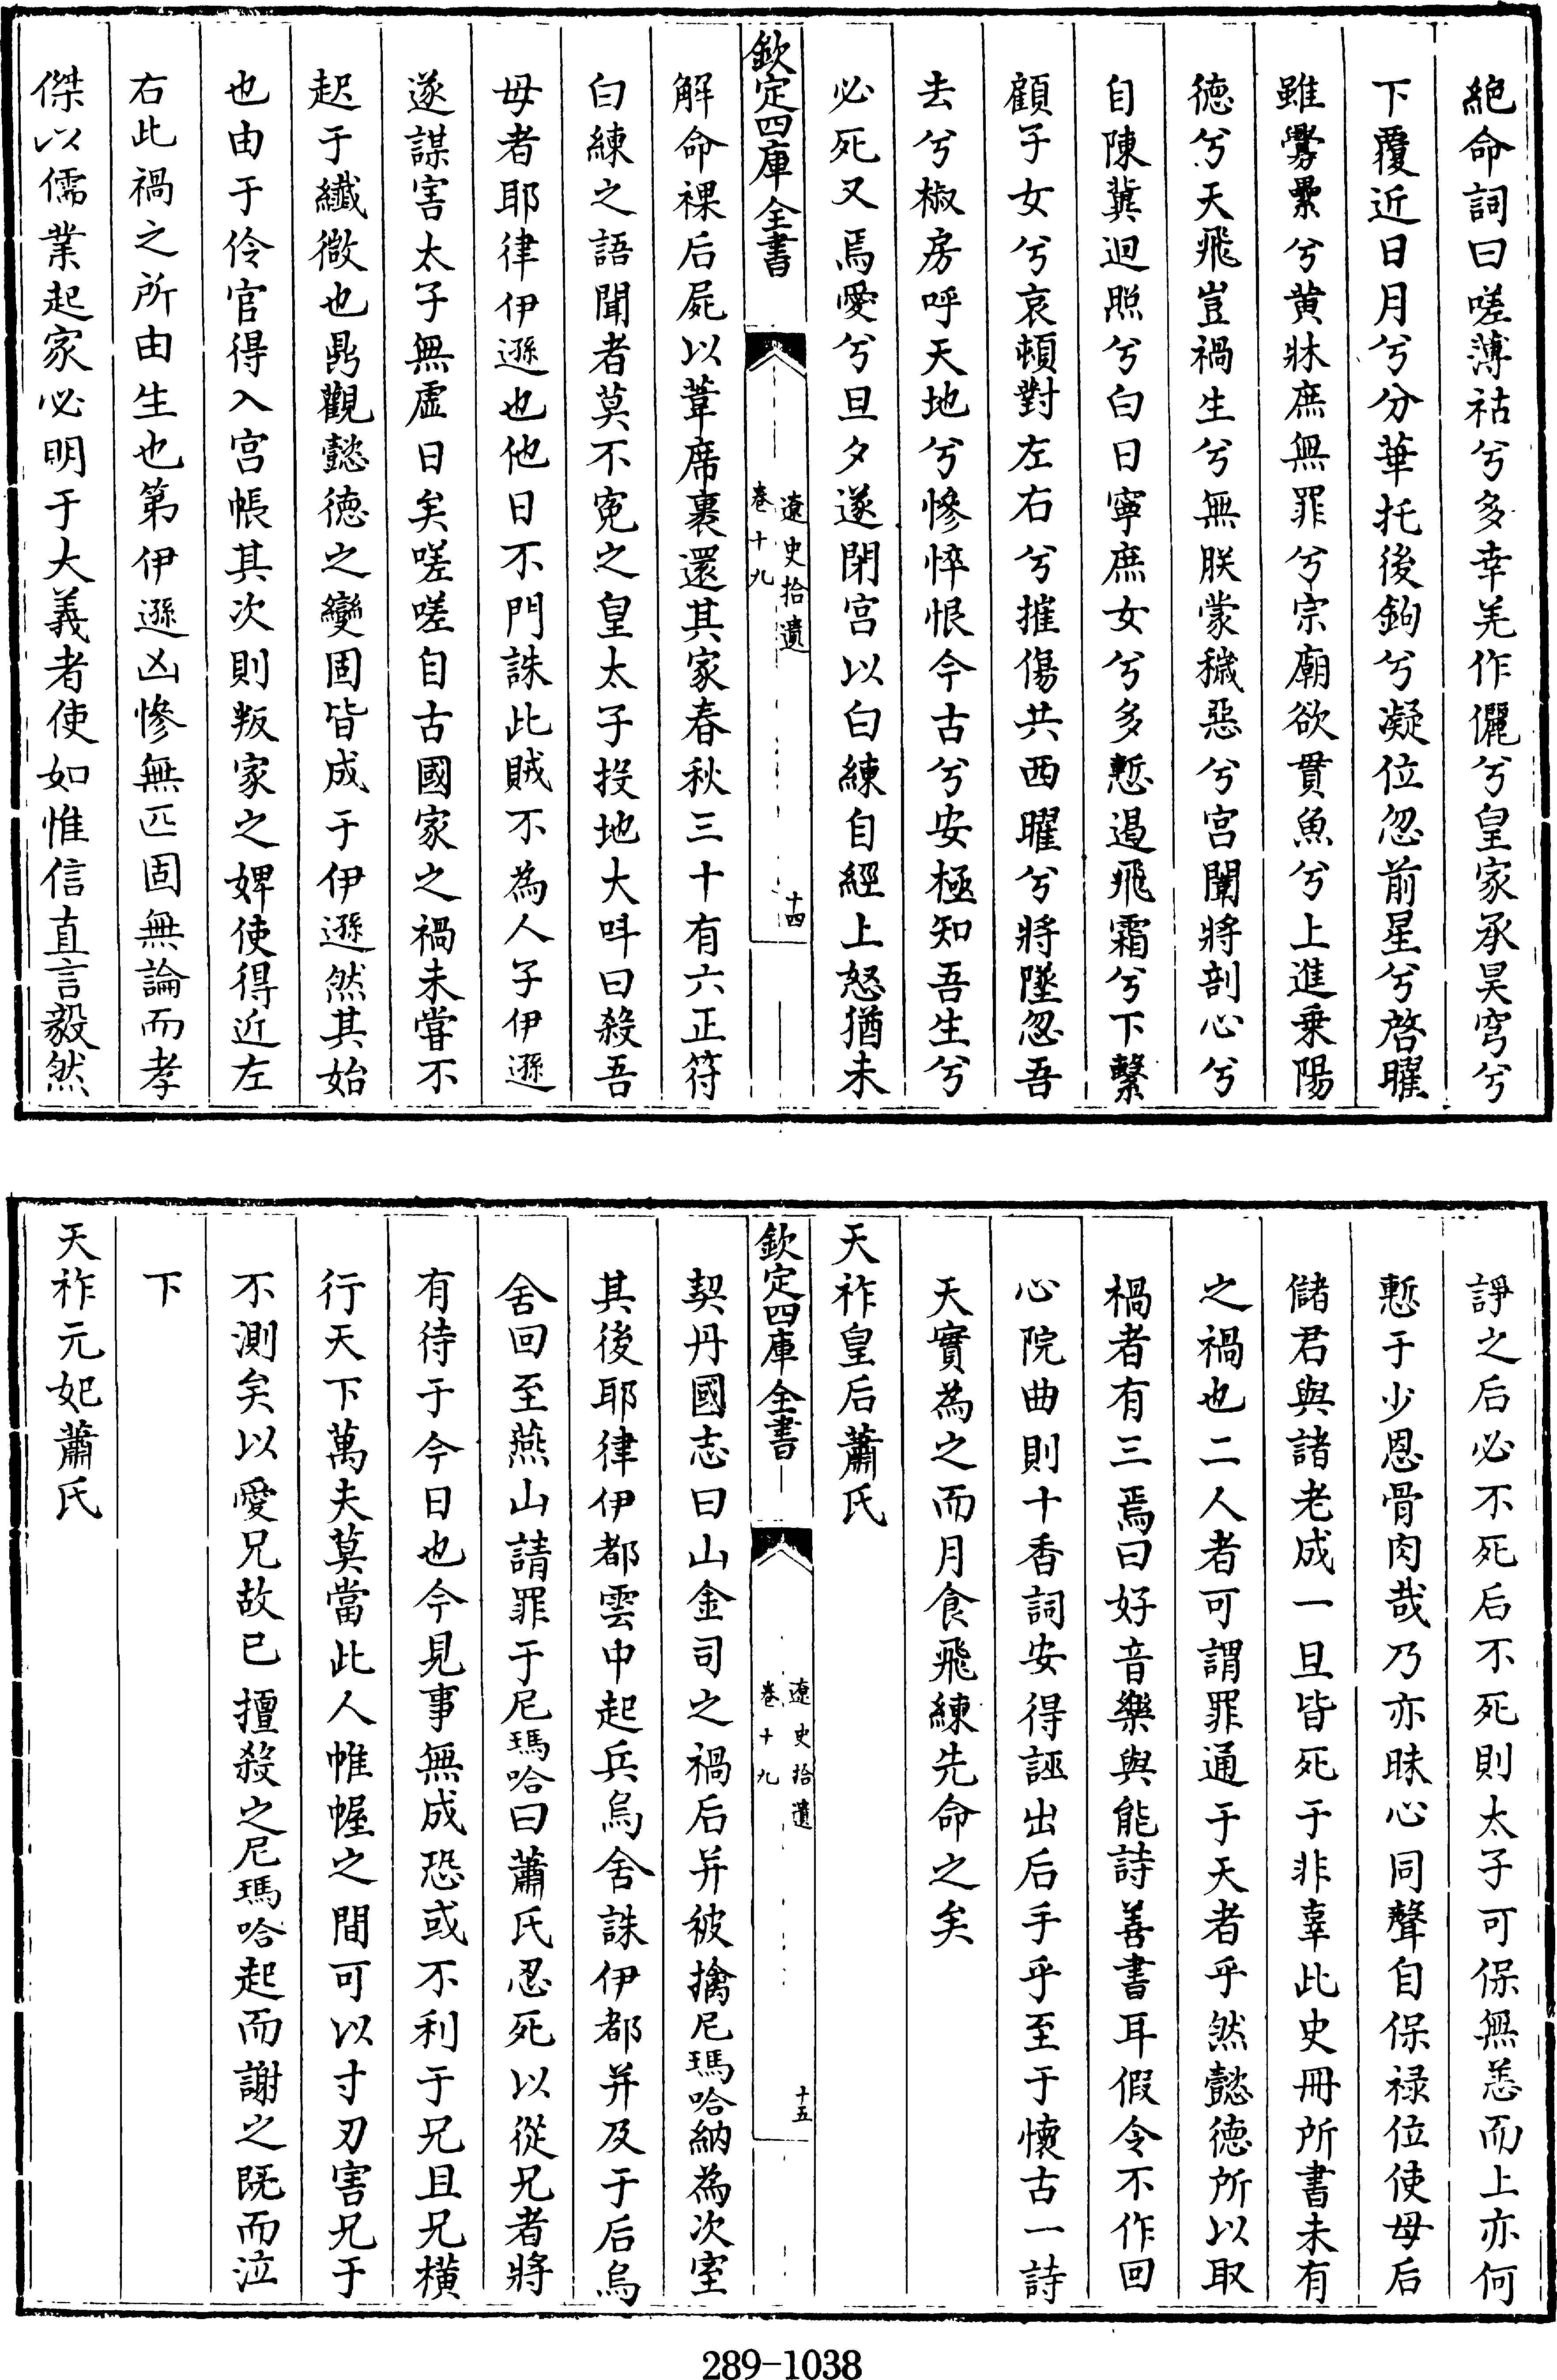 絶命詞曰嗟薄祜兮多幸羌作儷兮皇家承昊穹兮
下覆近日月兮分華托後鉤兮凝位忽前星兮啓曜
雖釁纍兮黄牀庶無罪兮宗廟欲貫魚兮上進乗陽
徳兮天飛豈禍生兮無朕蒙穢惡兮宫闈將剖心兮
自陳冀迴照兮白日寧庶女兮多慙遏飛霜兮下擊
顧子女兮哀頓對左右兮摧傷共西曜兮將墜忽吾
去兮椒房呼天地兮慘悴恨今古兮安極知吾生兮
必死又焉愛兮旦夕遂閉宫以白練自經上怒猶未
欽定四庫全書
遼史拾遺
卷十九
十四
解命裸后屍以葦席裹還其家春秋三十有六正符
白練之語聞者莫不寃之皇太子投地大呌曰殺吾
母者耶律伊遜也他日不門誅此賊不為人子伊遜
遂謀害太子無虚日矣嗟嗟自古國家之禍未嘗不
起于纎微也鼎觀懿徳之變固皆成于伊遜然其始
也由于伶官得入宫帳其次則叛家之婢使得近左
右此禍之所由生也第伊遜凶慘無匹固無論而孝
傑以儒業起家必明于大義者使如惟信直言毅然
諍之后必不死后不死則太子可保無恙而上亦何
慙于少恩骨肉哉乃亦昧心同聲自保禄位使母后
儲君與諸老成一旦皆死于非辜此史冊所書未有
之禍也二人者可謂罪通于天者乎然懿徳所以取
禍者有三焉曰好音樂與能詩善書耳假令不作回
心院曲則十香詞安得誣出后手乎至于懷古一詩
天實為之而月食飛練先命之矣
天祚皇后蕭氏
欽定四庫全書
遼史拾遺
卷十九
十五
契丹國志曰山金司之禍后并被擒尼瑪哈納為次室
其後耶律伊都雲中起兵烏舍誅伊都并及于后烏
舍回至燕山請罪于尼瑪哈曰蕭氏忍死以從兄者將
有待于今日也今見事無成恐或不利于兄且兄横
行天下萬夫莫當此人帷幄之間可以寸刃害兄于
不測矣以愛兄故已擅殺之尼瑪哈起而謝之既而泣
下
天祚元妃蕭氏
289-1038